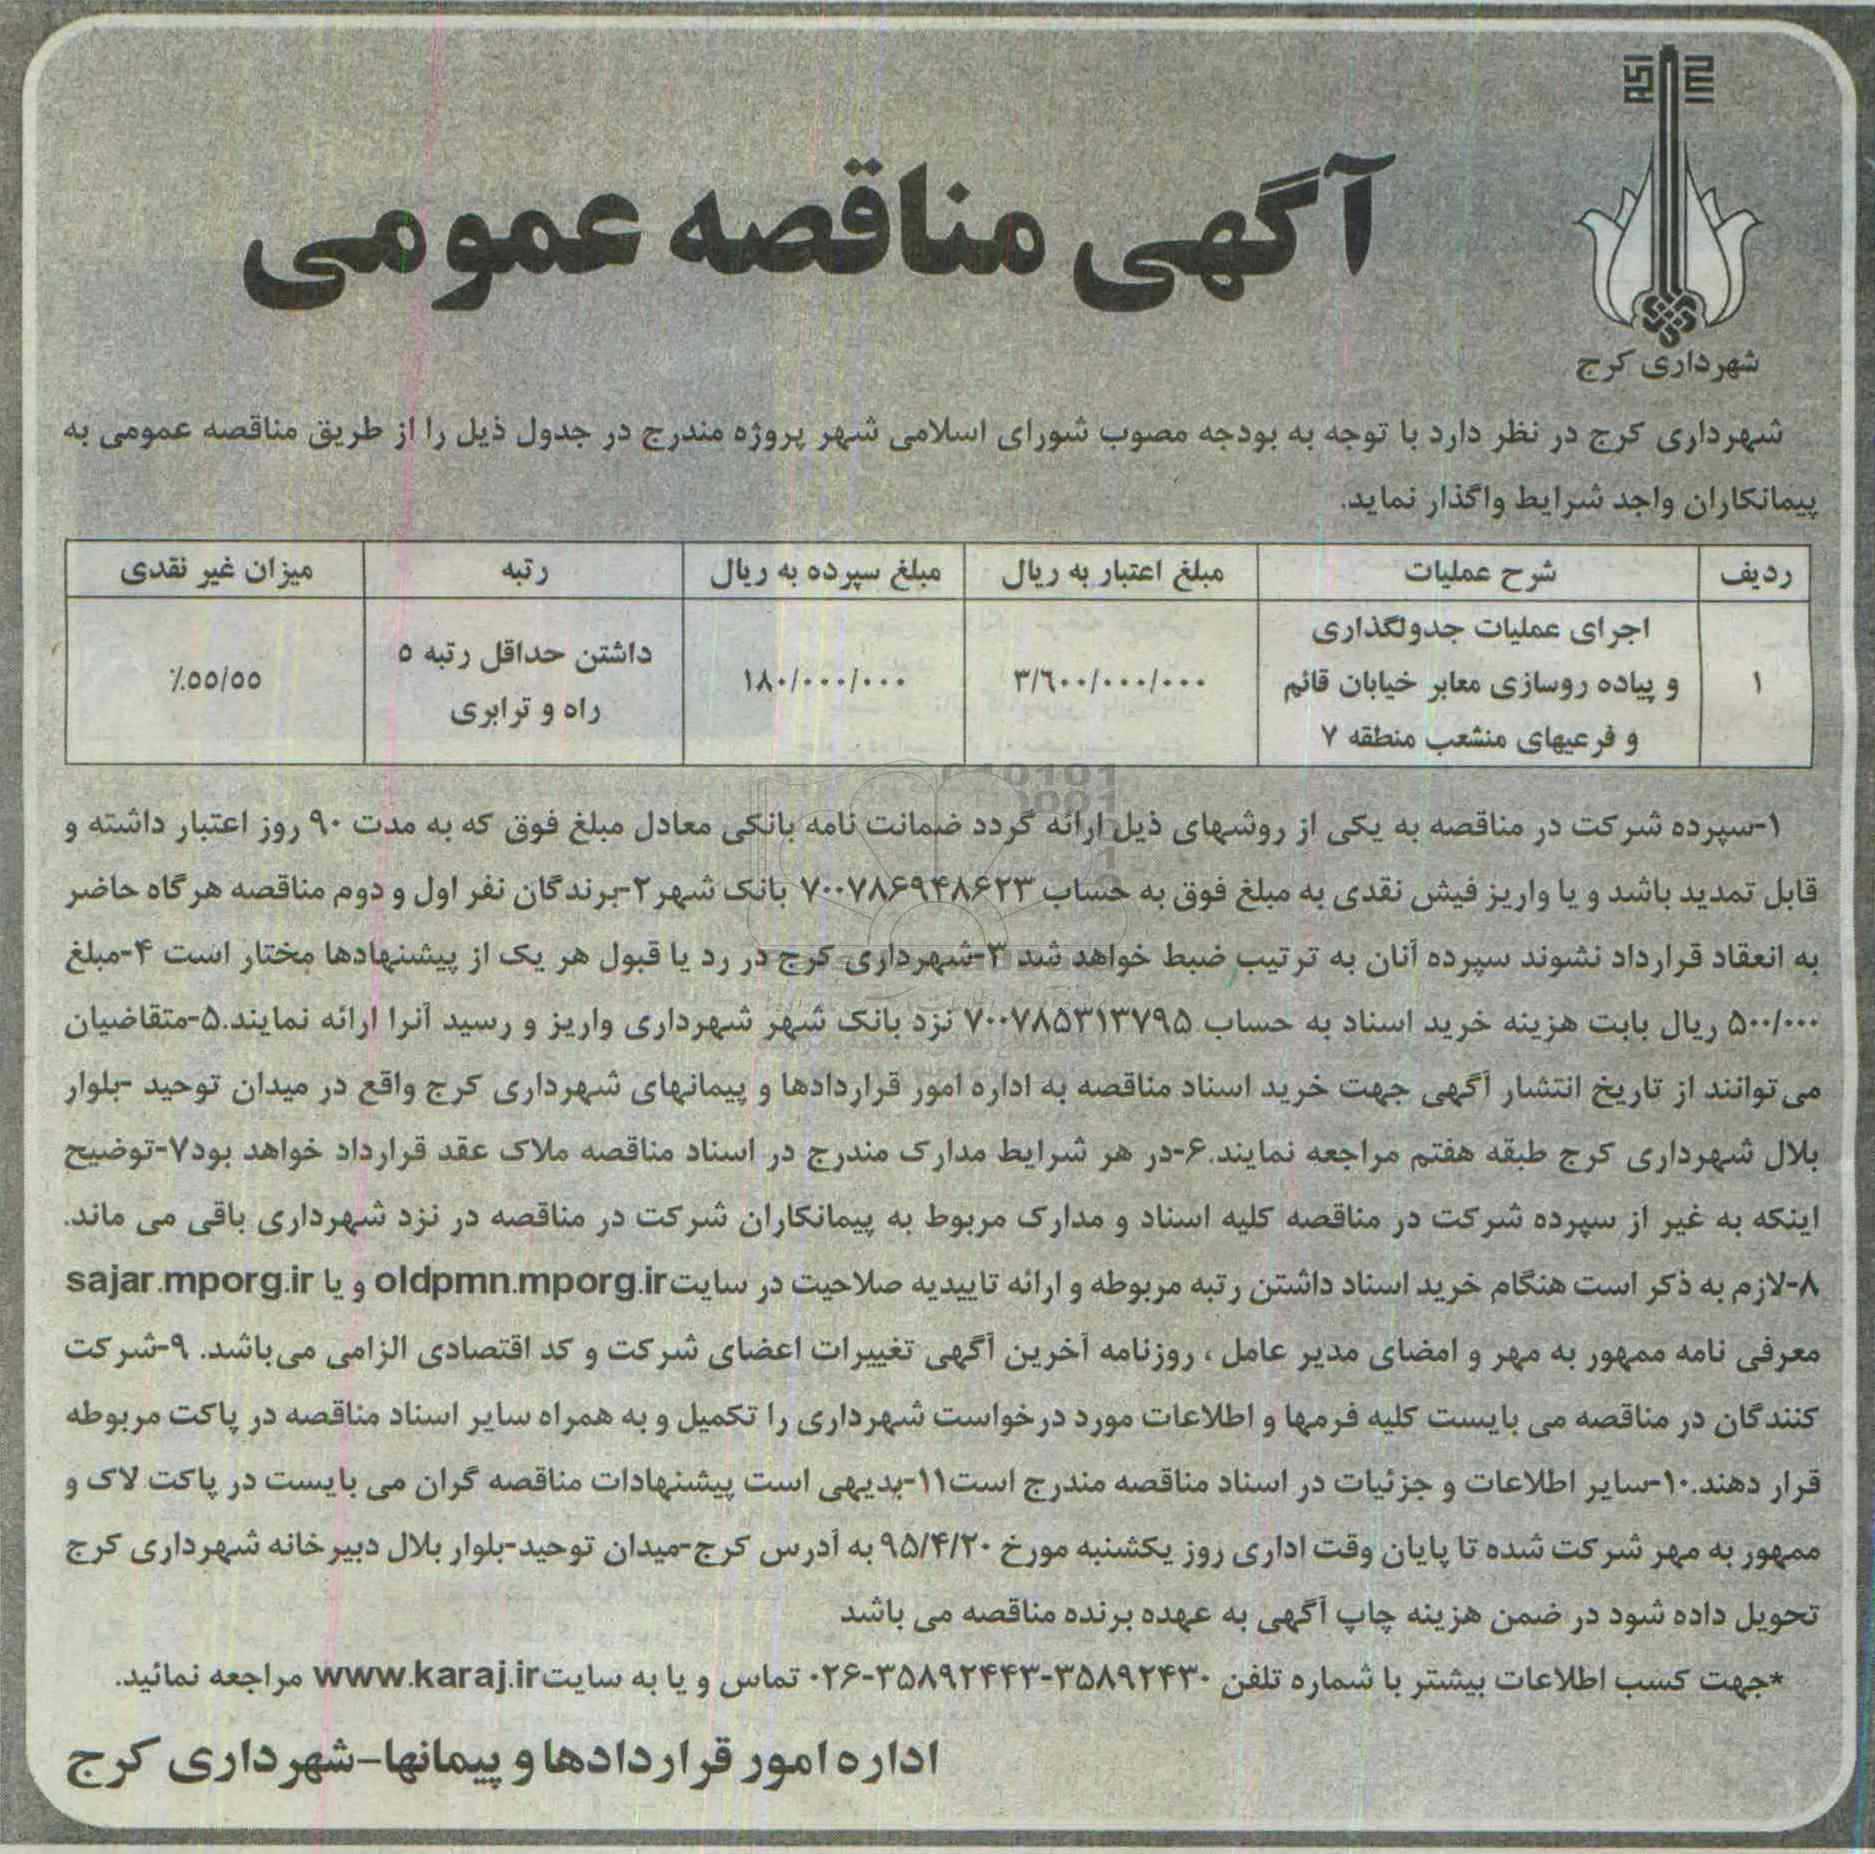 شهرداری کرج
آگهی مناقصه عمومی
شهرداری کرج در نظر دارد با توجه به بودجه مصوب شورای اسلامی شهر پروژه مندرج در جدول ذیل را از طریق مناقصه عمومی به
پیمانکاران واجد شرایط واگذار نماید.
ردیف شرح عملیات مبلغ اعتبار به ریال مبلغ سپرده به ریال رتبه میزان غیر نقدی
۱ اجرای عملیات جدولگذاری و پیاده روسازی معابر خیابان قائم و فرعیهای منشعب منطقه ۷ ۳/۶۰۰/۰۰۰/۰۰۰ ۱۸۰/۰۰۰/۰۰۰ داشتن حداقل رتبه ۵ راه و ترابری ٪۵۵/۵۵
۱-سپرده شرکت در مناقصه به یکی از روشهای ذیل ارائه گردد ضمانت نامه بانکی معادل مبلغ فوق که به مدت ۹۰ روز اعتبار داشته و
قابل تمدید باشد و یا واریز فیش نقدی به مبلغ فوق به حساب ۷۰۰۷۸۶۹۴۸۶۲۳ بانک شهر۲-برندگان نفر اول و دوم مناقصه هرگاه حاضر
به انعقاد قرارداد نشوند سپرده آنان به ترتیب ضبط خواهد شد ۳-شهرداری کرج در رد یا قبول هر یک از پیشنهادها مختار است ۴-مبلغ
۵۰۰/۰۰۰ ریال بابت هزینه خرید اسناد به حساب ۷۰۰۷۸۵۳۱۳۷۹۵ نزد بانک شهر شهرداری واریز و رسید آنرا ارائه نمایند.۵-متقاضیان
می توانند از تاریخ انتشار آگهی جهت خرید اسناد مناقصه به اداره امور قراردادها و پیمانهای شهرداری کرج واقع در میدان توحید -بلوار
بلال شهرداری کرج طبقه هفتم مراجعه نمایند.۶-در هر شرایط مدارک مندرج در اسناد مناقصه ملاک عقد قرارداد خواهد بود۷-توضیح
اینکه به غیر از سپرده شرکت در مناقصه کلیه اسناد و مدارک مربوط به پیمانکاران شرکت در مناقصه در نزد شهرداری باقی می ماند.
۸-لازم به ذکر است هنگام خرید اسناد داشتن رتبه مربوطه و ارائه تاییدیه صلاحیت در سایت oldpmn.mporg.ir و یا sajar.mporg.ir
معرفی نامه ممهور به مهر و امضای مدیر عامل ، روزنامه آخرین آگهی تغییرات اعضای شرکت و کد اقتصادی الزامی می‌باشد. ۹-شرکت
کنندگان در مناقصه می بایست کلیه فرمها و اطلاعات مورد درخواست شهرداری را تکمیل و به همراه سایر اسناد مناقصه در پاکت مربوطه
قرار دهند.۱۰-سایر اطلاعات و جزئیات در اسناد مناقصه مندرج است۱۱-بدیهی است پیشنهادات مناقصه گران می بایست در پاکت لاک و
ممهور به مهر شرکت شده تا پایان وقت اداری روز یکشنبه مورخ ۹۵/۴/۲۰ به آدرس کرج-میدان توحید-بلوار بلال دبیرخانه شهرداری کرج
تحویل داده شود در ضمن هزینه چاپ آگهی به عهده برنده مناقصه می باشد
*جهت کسب اطلاعات بیشتر با شماره تلفن ۳۵۸۹۲۴۳۰-۳۵۸۹۲۴۴۳-۰۲۶ تماس و یا به سایت www.karaj.ir مراجعه نمائید.
اداره امور قراردادها و پیمانها-شهرداری کرج